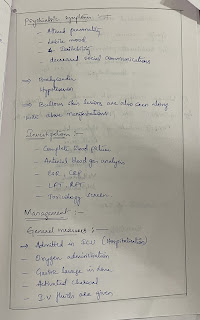 Psychiatric symptoms
- Altered personality
- Labile mood
& Irritability
decreased social communications
→ Bradycardia
Hypotension
→ Bullous skin lesions are also seen along
with above manifestations
Investigations :—
- Complete blood picture
- Arterial blood gas analysis
- ESR, CRP
- LFT, RFT
- Toxicology screen
Management :—
General measures :—
→ Admitted in ICU (Hospitalisation)
- Oxygen administration
- Gastric lavage is done
- Activated charcoal
- I.V fluids are given